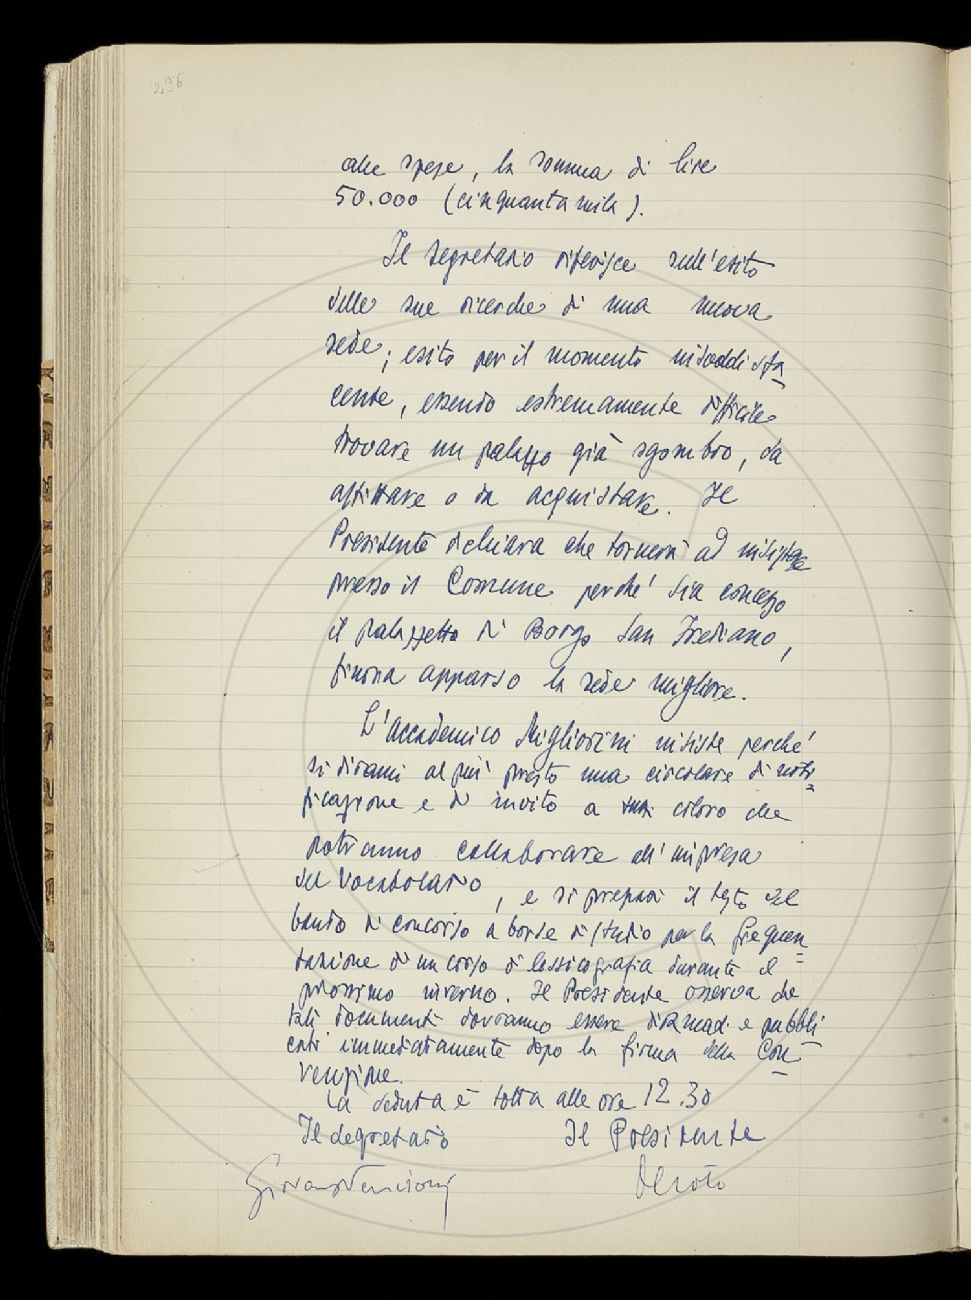 296
alle spese, la somma di lire
50.000 (cinquantamila).
Il Segretario riferisce sull'esito
delle sue ricerche di una nuova
sede; esito per il momento insoddisfa
cente, essendo estremamente difficile
trovare un palazzo già sgombro, da
affittare o da acquistare. Il
Presidente dichiara che tornerà ad insistere
presso il Comune perché sia concesso
il palazzetto di Borgo San Frediano,
finora apparso la sede migliore.
L'Accademico Migliorini insiste perché
si dirami al più presto una circolare di noti
ficazione e di invito a tutti coloro che
potranno collaborare all'impresa
del Vocabolario, e si prepari il testo del
bando di concorso a borse di studio per la frequen
tazione di un corso di lessicografia durante il
prossimo inverno. Il Presidente osserva che
tali documenti dovranno essere diramati e pubbli
cati immediatamente dopo la firma della Con
venzione.
La seduta è tolta alle ore 12.30
Il Segretario Il Presidente
Giovanni Nencioni Devoto